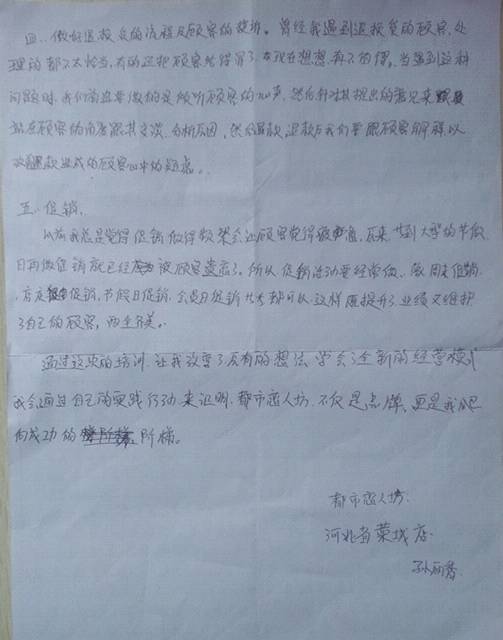 四. 做好退换货的流程及顾客的投诉。曾经我遇到退换货的顾客,处
理的都不太恰当,有的还把顾客给得罪了,在现在想想真不值得。当遇到这种
问题时,我们首先要做的是倾听顾客的心声,然后针对其提出的意见来
站在顾客的角度跟其交谈,分析原因,然后退款,退款后我们要跟顾客解释以
退款造成的顾客心中的疑虑。
五. 促销.
以前我总是觉得促销做得频繁会让顾客觉得疲惫,原来 等到大型的节假
日再做促销就已经被顾客遗忘了,所以促销活动要经常做、像周末促销
、店庆促销、节假日促销、会员日促销 等都可以 这样既提升了业绩又维护
了自己的顾客,两全齐美。
通过这次的培训,让我改变了原有的想法,学会了全新的经营模式
我会通过自己的实践行动来证明,都市恋人坊,不仅是品牌,更是我们
向成功的阶梯。
都市恋人坊:
河北省藁城店.
孙丽香